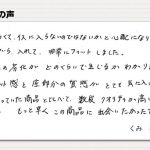 の声
って、気に入らないのではないかと心配になり
から、入れて、非常にフィットしました。
の劣化が どのくらいで生じるか わかり
ット感と 座部分の質感が とても 気に入
っていた商品とくらべて、数段 クオリティが高い
。もっと早く この商品に 出会いたかったで
くみ